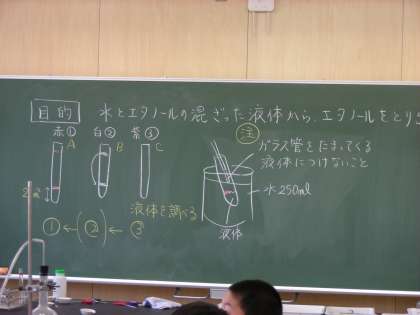 目的 水とエタノールの混ざった液体から、エタノールをとり
赤① 白② 紫③
A B C
注 ガラス管をたまってくる
液体につけないこと
水250ml
液体
液体を調べる
①←(②)←③